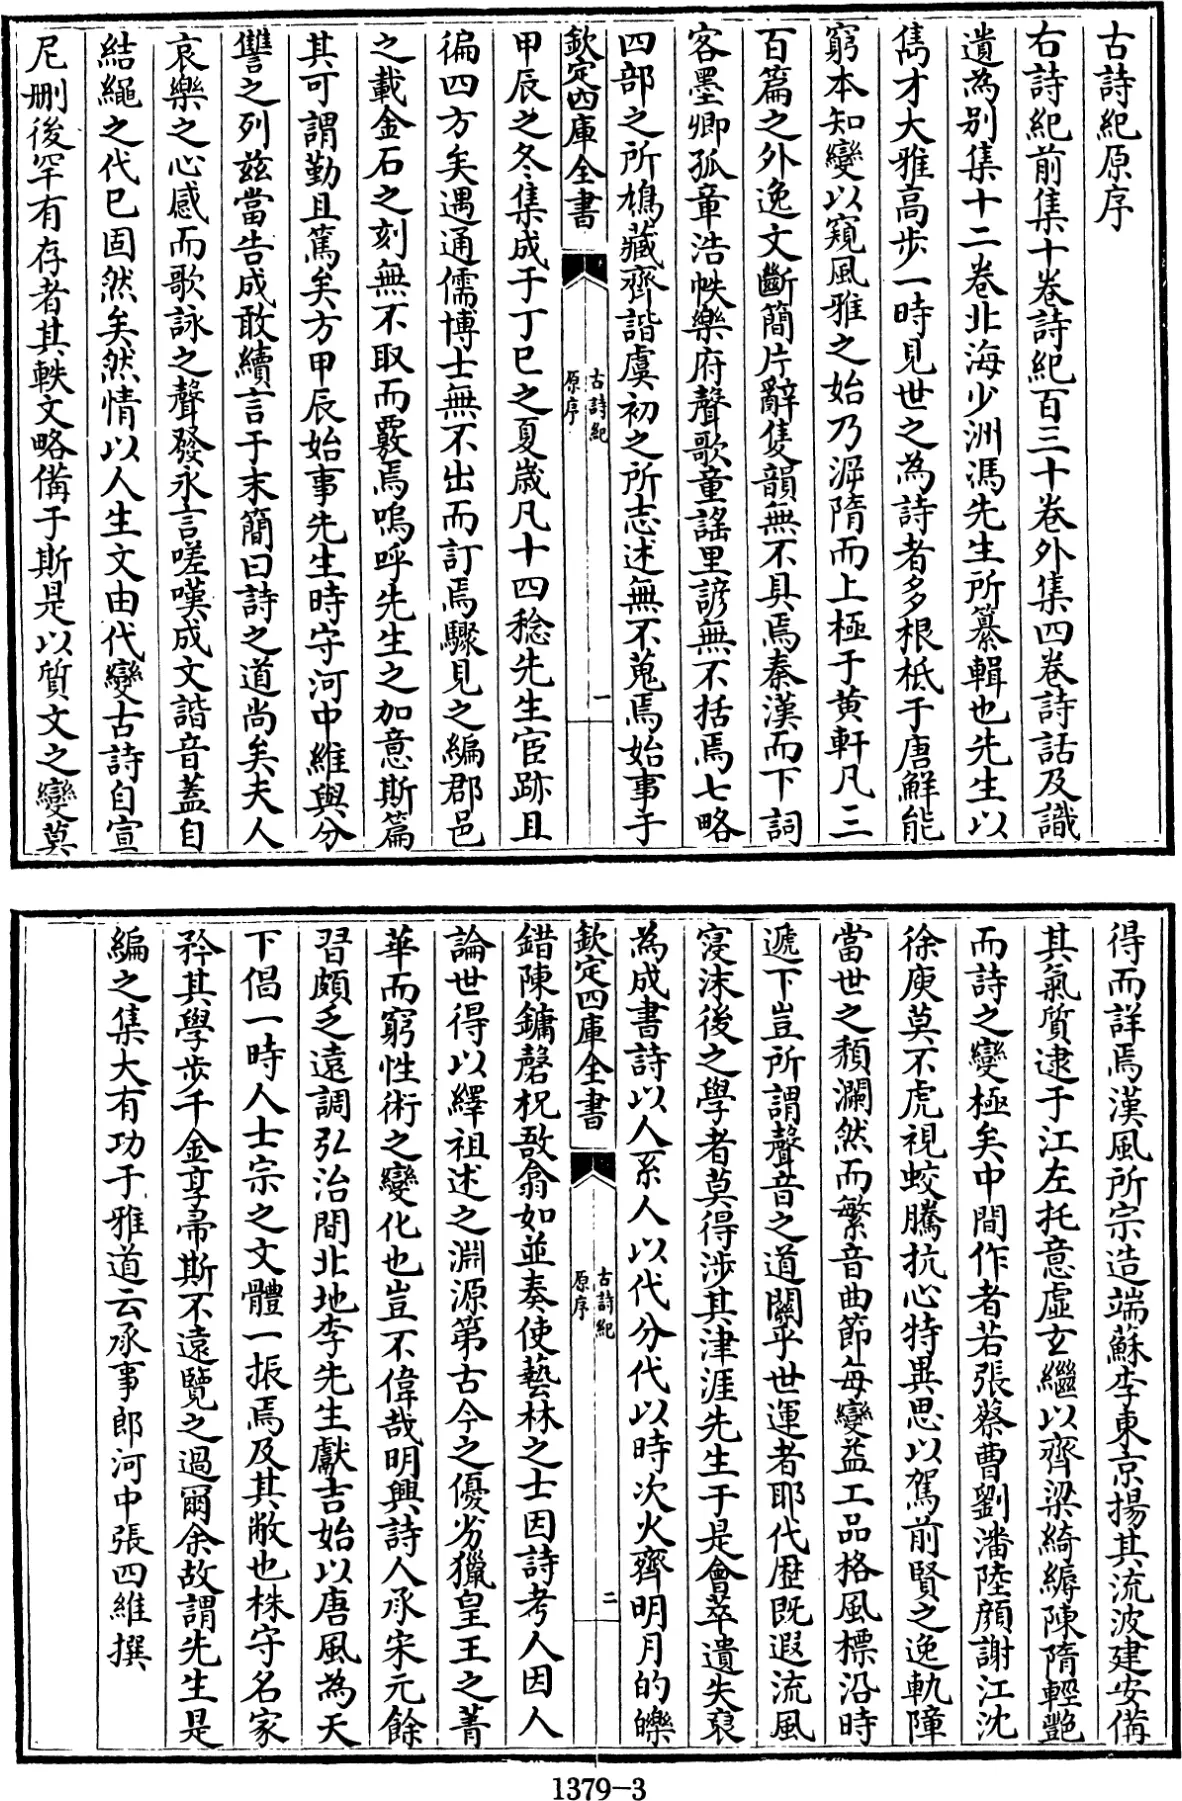 古詩紀原序
右詩紀前集十卷詩紀百三十卷外集四卷詩話及識
遺為別集十二卷北海少洲馮先生所纂輯也先生以
雋才大雅高步一時見世之為詩者多根柢于唐鮮能
窮本知變以窺風雅之始乃泝隋而上極于黄軒凡三
百篇之外逸文斷簡片辭隻韻無不具焉秦漢而下詞
客墨卿孤章浩帙樂府聲歌童謡里諺無不括焉七略
四部之所鳩藏齊諧虞初之所志述無不蒐焉始事于
欽定四庫全書
古詩紀
原序
一
甲辰之冬集成于丁巳之夏歲凡十四稔先生宦跡且
徧四方矣遇通儒博士無不出而訂焉驟見之編郡邑
之載金石之刻無不取而覈焉嗚呼先生之加意斯篇
其可謂勤且篤矣方甲辰始事先生時守河中維與分
讐之列兹當告成敢續言于末簡曰詩之道尚矣夫人
哀樂之心感而歌詠之聲發永言嗟嘆成文諧音蓋自
結繩之代已固然矣然情以人生文由代變古詩自宣
尼刪後罕有存者其軼文略備于斯是以質文之變莫
得而詳焉漢風所宗造端蘇李東京揚其流波建安備
其氣質逮于江左托意虚玄繼以齊梁綺縟陳隋輕艷
而詩之變極矣中間作者若張蔡曹劉潘陸顔謝江沈
徐庾莫不虎視蛟騰抗心特異思以駕前賢之逸軌障
當世之頽瀾然而繁音曲節每變益工品格風標沿時
遞下豈所謂聲音之道關乎世運者耶代歴既遐流風
寖沬後之學者莫得涉其津涯先生于是會萃遺失裒
為成書詩以人系人以代分代以時次火齊明月的皪
欽定四庫全書
古詩紀
原序
二
錯陳鏞磬柷敔翕如並奏使藝林之士因詩考人因人
論世得以繹祖述之淵源第古今之優劣獵皇王之菁
華而窮性術之變化也豈不偉哉明興詩人承宋元餘
習頗乏遠調弘治間北地李先生獻吉始以唐風為天
下倡一時人士宗之文體一振焉及其敝也株守名家
矜其學步千金享帚斯不遠覽之過爾余故謂先生是
編之集大有功于雅道云承事郎河中張四維撰
1379-3